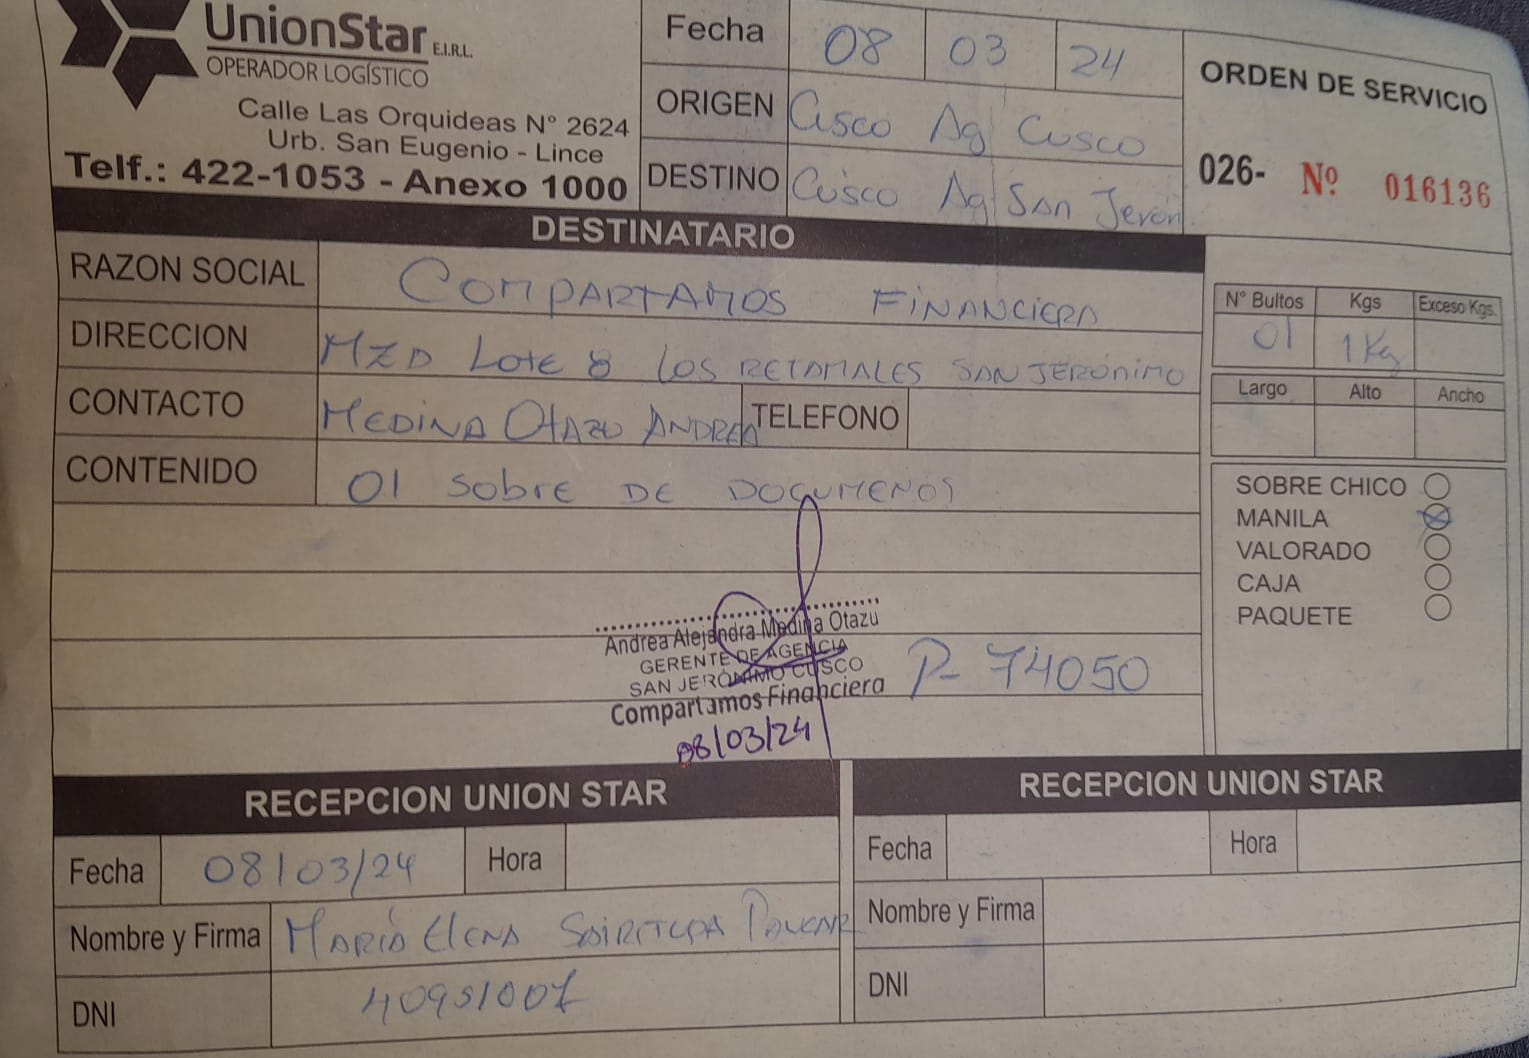 UnionStar E.I.R.L.
OPERADOR LOGÍSTICO
Calle Las Orquideas N° 2624
Urb. San Eugenio - Lince
Telf.: 422-1053 - Anexo 1000
Fecha 08 03 24
ORIGEN Cusco Ag Cusco
DESTINO Cusco Ag San Jerón
ORDEN DE SERVICIO
026- Nº 016136
DESTINATARIO
RAZON SOCIAL COMPARTAMOS FINANCIERA
DIRECCION MZD Lote 8 LOS RETAMALES SAN JERÓNIMO
CONTACTO MEDINA OTAZU ANDREA TELEFONO
CONTENIDO 01 SOBRE DE DOCUMENOS
N° Bultos Kgs Exceso Kgs.
01 1 Kg
Largo Alto Ancho
SOBRE CHICO
MANILA
VALORADO
CAJA
PAQUETE
Andrea Alejandra Medina Otazu
GERENTE DE AGENCIA
SAN JERÓNIMO CUSCO
Compartamos Financiera
08/03/24
P- 74050
RECEPCION UNION STAR
Fecha 08/03/24 Hora
Nombre y Firma MARÍA ELENA
DNI
RECEPCION UNION STAR
Fecha Hora
Nombre y Firma
DNI